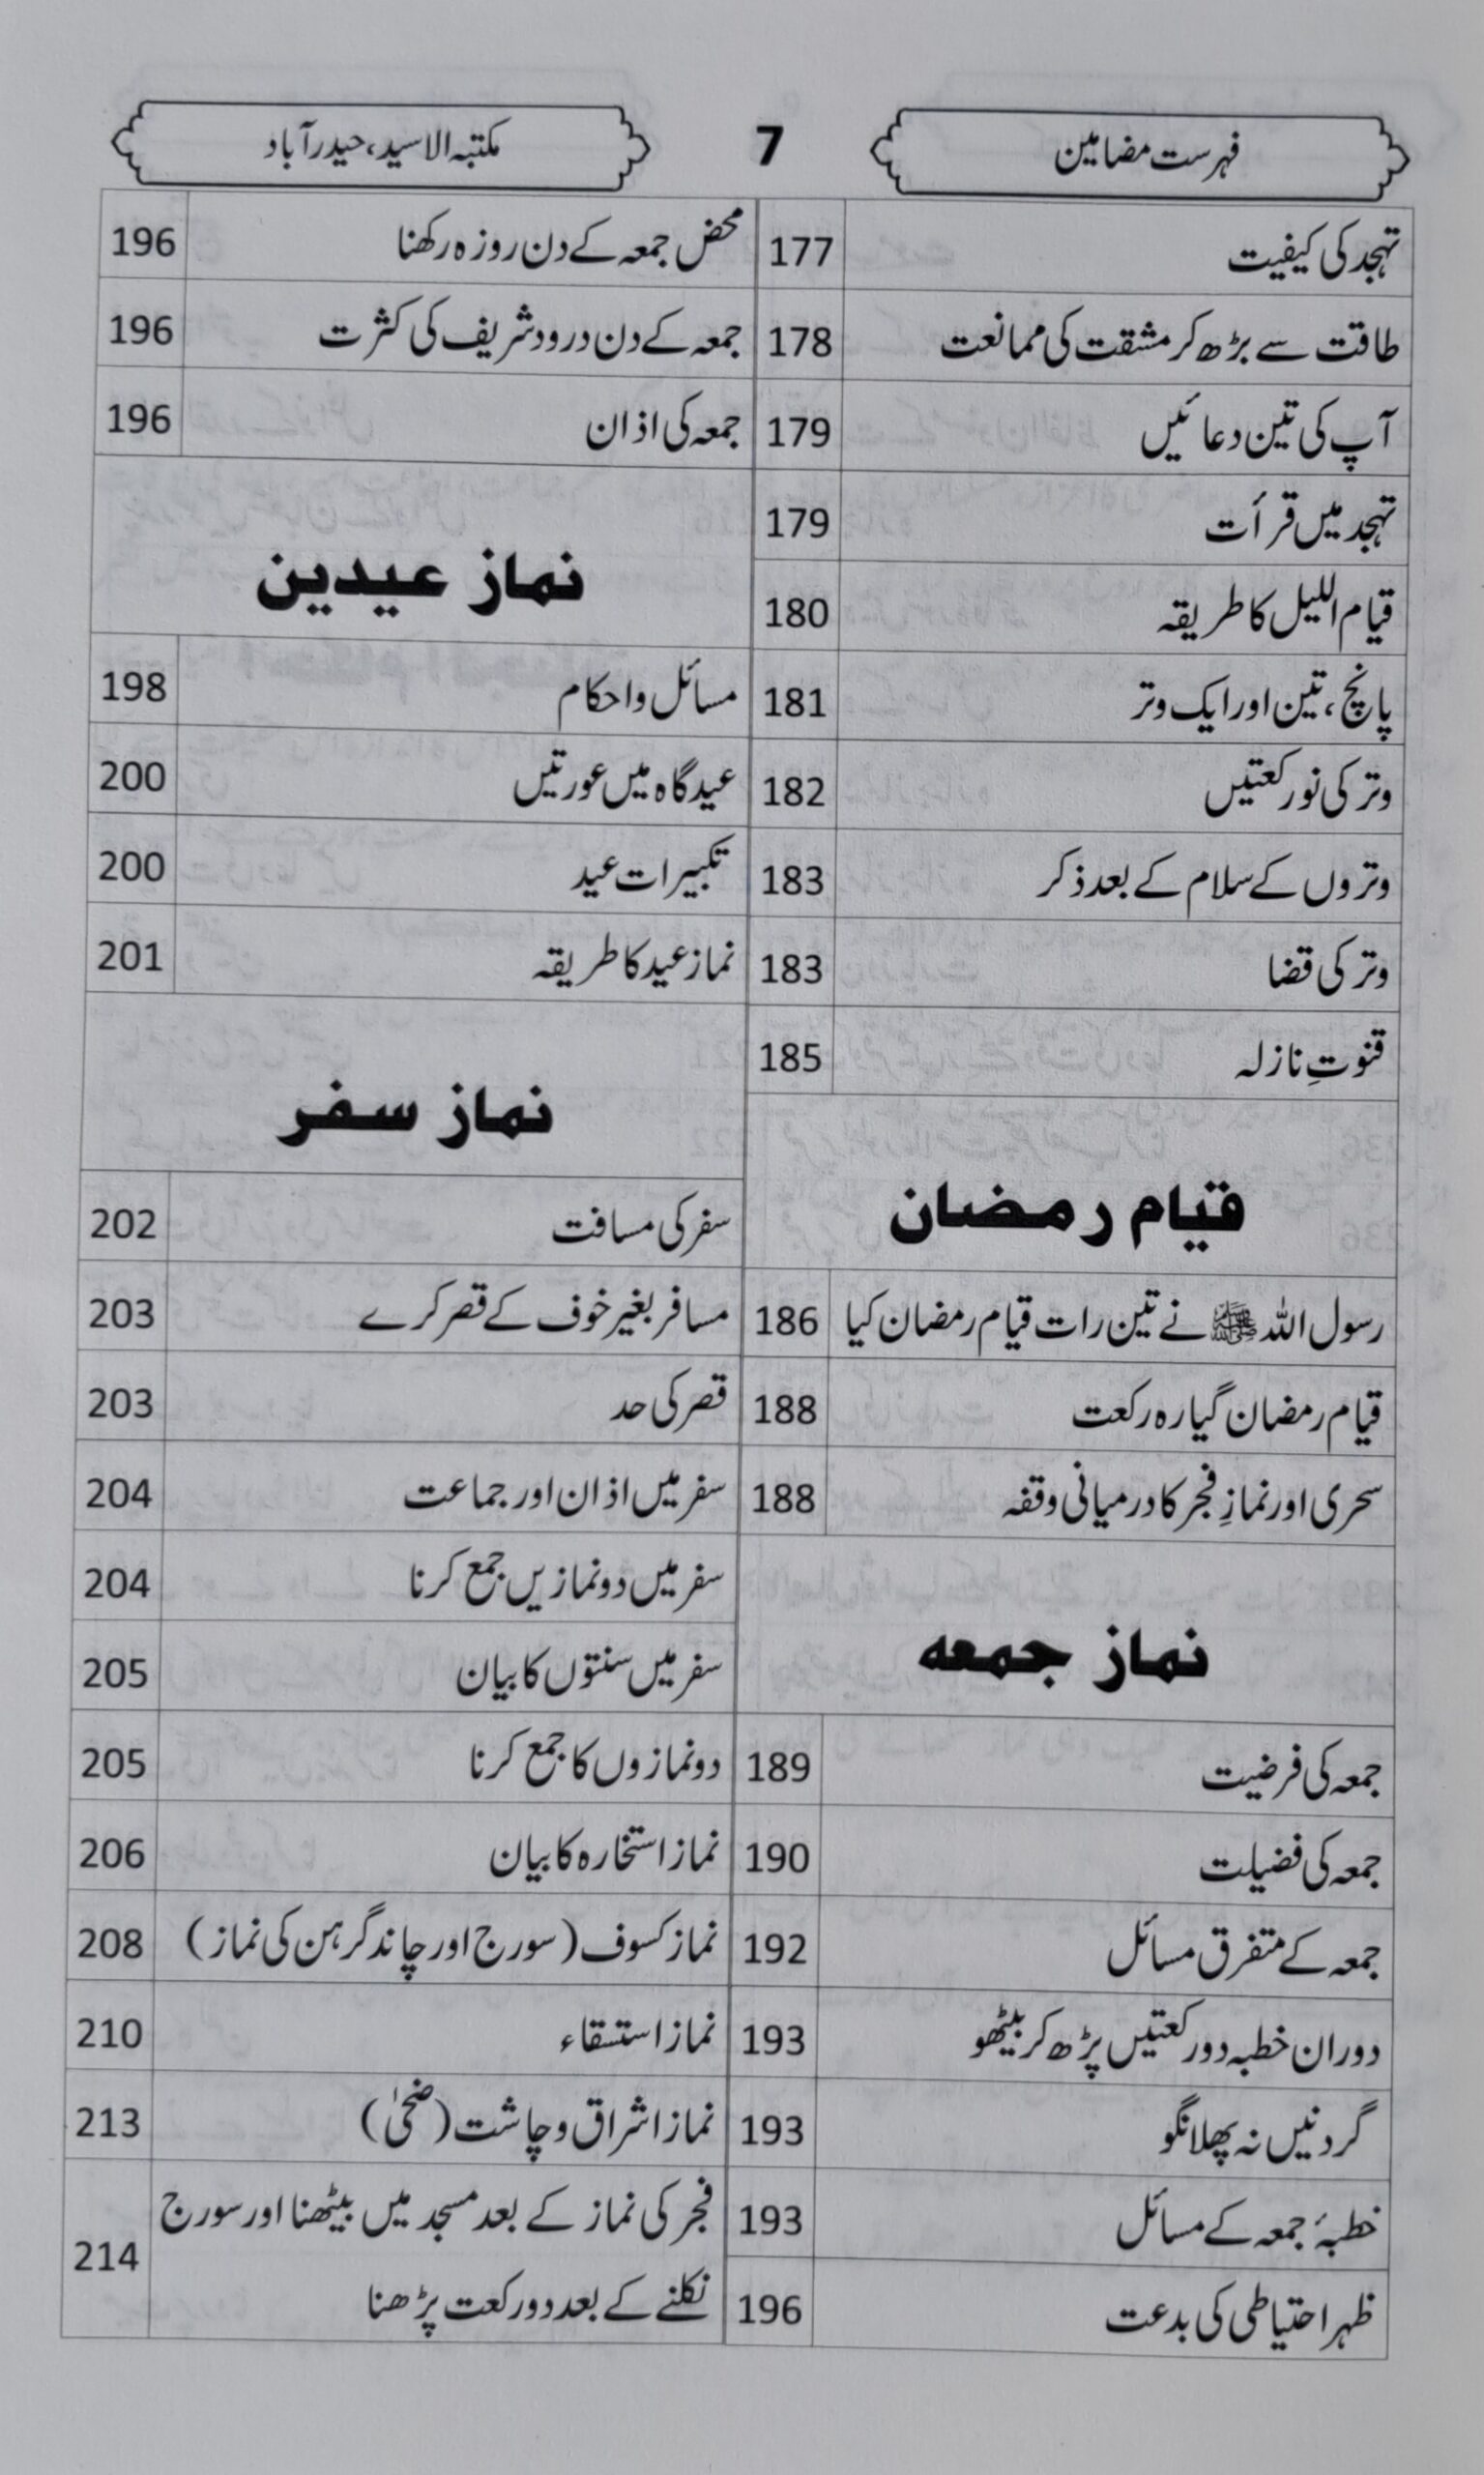 فہرست مضامین
7
مکتبہ الاسید، حیدرآباد
تہجد کی کیفیت 177
طاقت سے بڑھ کر مشقت کی ممانعت 178
آپ کی تین دعائیں 179
تہجد میں قرأت 179
قیام اللیل کا طریقہ 180
پانچ، تین اور ایک وتر 181
وتر کی نور کعتیں 182
وتروں کے سلام کے بعد ذکر 183
وتر کی قضا 183
قنوتِ نازلہ 185
قیام رمضان
رسول اللہ ﷺ نے تین رات قیام رمضان کیا 186
قیام رمضان گیارہ رکعت 188
سحری اور نمازِ فجر کا درمیانی وقفہ 188
نماز جمعہ
جمعہ کی فرضیت 189
جمعہ کی فضیلت 190
جمعہ کے متفرق مسائل 192
دوران خطبہ دو رکعتیں پڑھ کر بیٹھو 193
گردنیں نہ پھلانگو 193
خطبۂ جمعہ کے مسائل 193
ظہر احتیاطی کی بدعت 196
محض جمعہ کے دن روزہ رکھنا 196
جمعہ کے دن درود شریف کی کثرت 196
جمعہ کی اذان 196
نماز عیدین
مسائل و احکام 198
عیدگاہ میں عورتیں 200
تکبیرات عید 200
نماز عید کا طریقہ 201
نماز سفر
سفر کی مسافت 202
مسافر بغیر خوف کے قصر کرے 203
قصر کی حد 203
سفر میں اذان اور جماعت 204
سفر میں دو نمازیں جمع کرنا 204
سفر میں سنتوں کا بیان 205
دو نمازوں کا جمع کرنا 205
نماز استخارہ کا بیان 206
نماز کسوف (سورج اور چاند گرہن کی نماز) 208
نماز استسقاء 210
نماز اشراق و چاشت (ضحیٰ) 213
فجر کی نماز کے بعد مسجد میں بیٹھنا اور سورج
نکلنے کے بعد دو رکعت پڑھنا 214